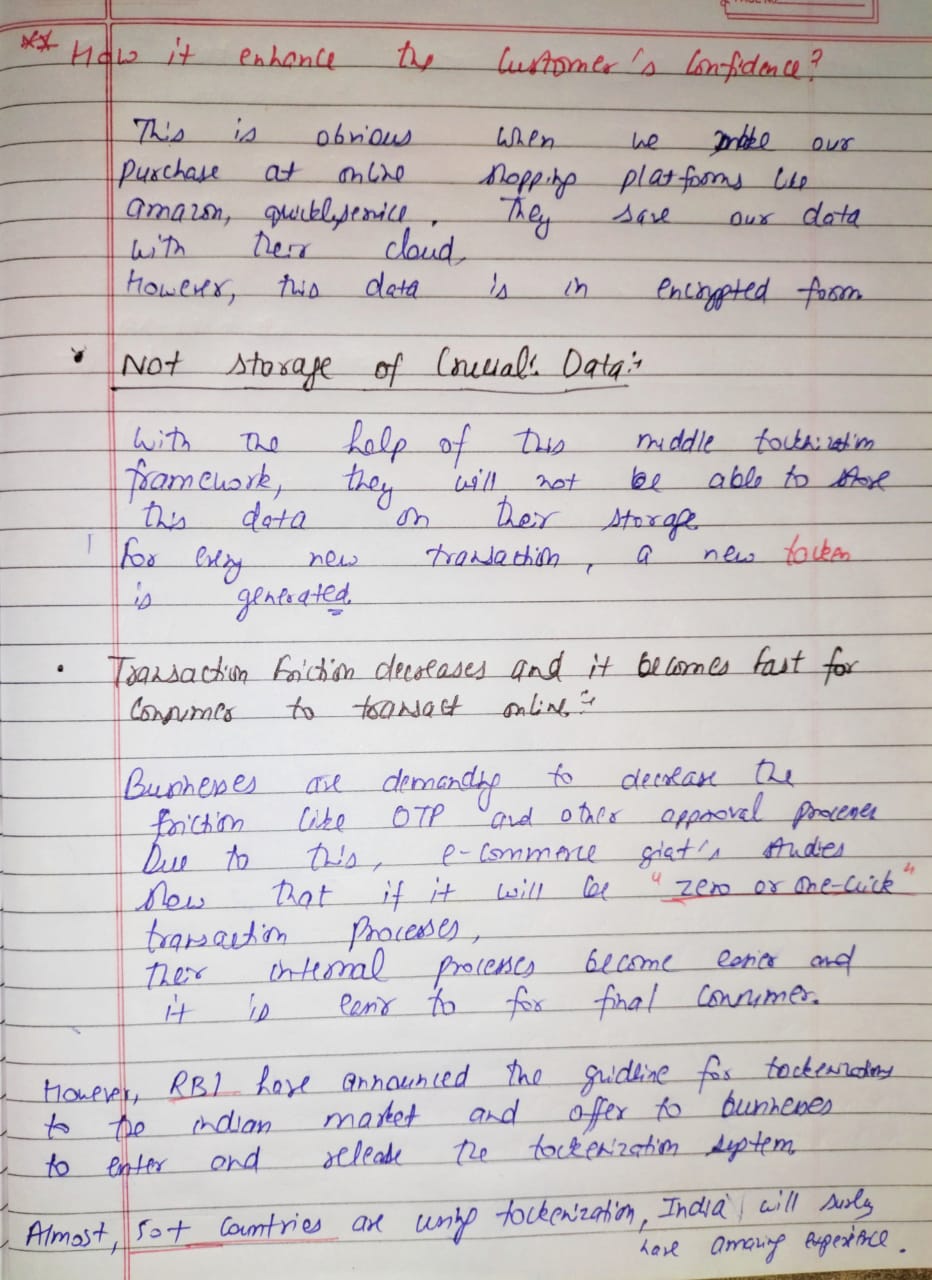 ** How it enhance the Customer's Confidence?
This is obvious when we make our
purchase at online shopping platforms like
amazon, quickly service. They save our data
with their cloud.
However, this data is in encrypted form
Not storage of Crucial Data:-
With the help of this middle tockenization
framework, they will not be able to store
this data on their storage.
for every new transaction, a new tocken
is generated.
• Transaction friction decreases and it becomes fast for
Consumer to transact online:-
Businesses are demanding to decrease the
friction like OTP and other approval processes
Due to this, e-commerce giat's studies
show that if it will be "zero or one-click"
transaction processes,
their internal processes become easier and
it is easir to for final consumer.
However, RBI have announced the guidline for tockenization
to the indian market and offer to businesses
to enter and release the tockenization system.
Almost, 50+ countries are using tockenization, India will surly
have amazing experience.